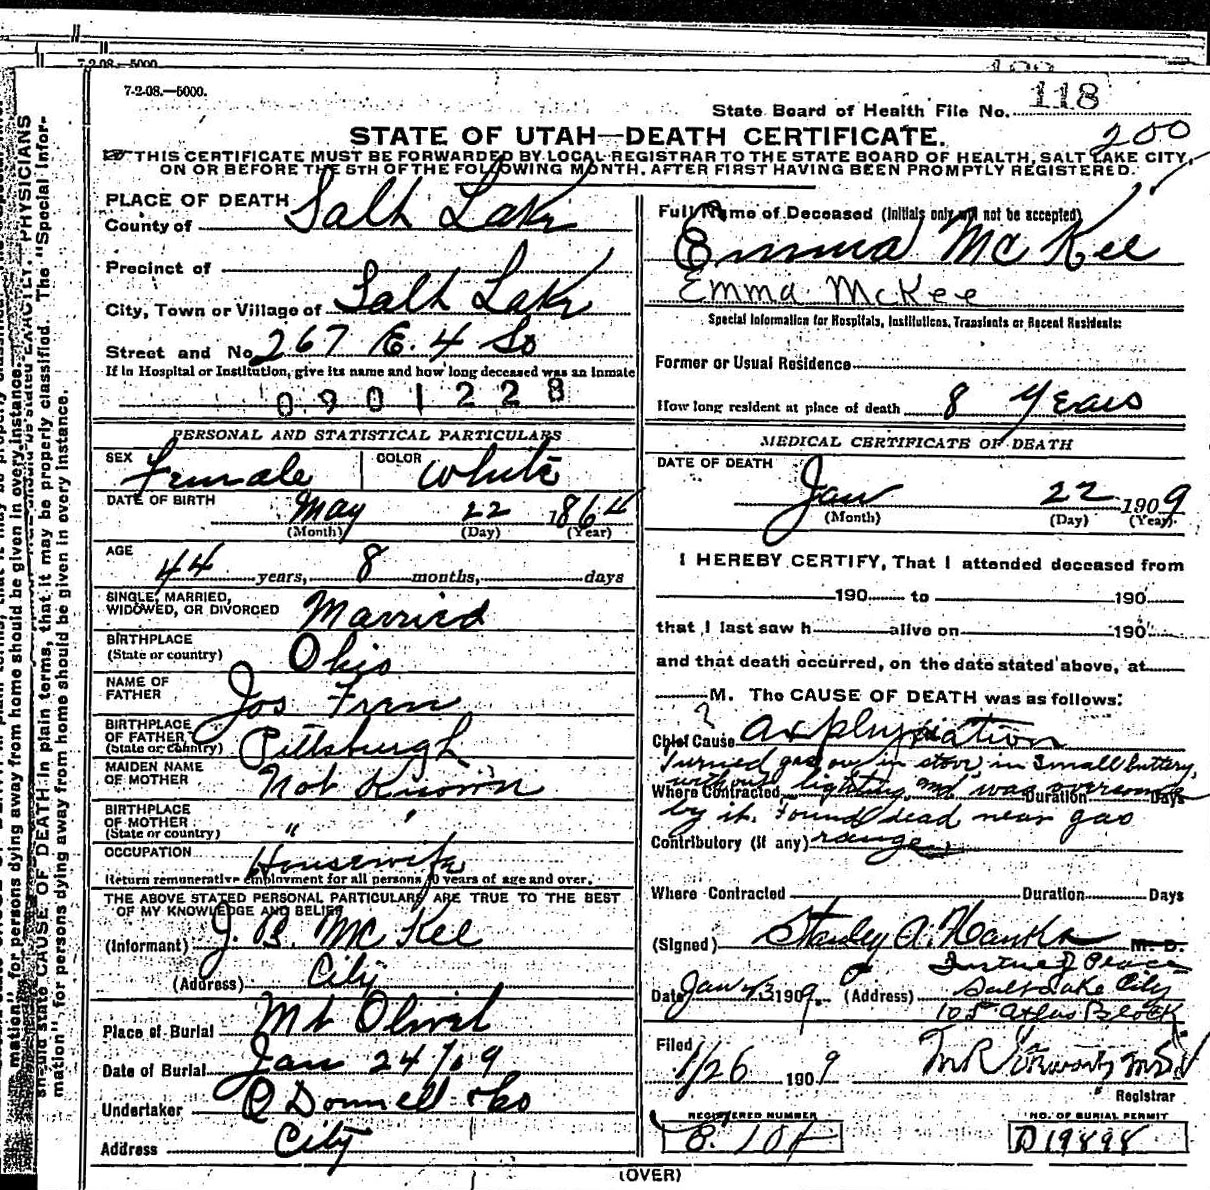 7-2-08.—5000.
7-2-08.—5000.
State Board of Health File No. 118
200
STATE OF UTAH—DEATH CERTIFICATE.
THIS CERTIFICATE MUST BE FORWARDED BY LOCAL REGISTRAR TO THE STATE BOARD OF HEALTH, SALT LAKE CITY,
ON OR BEFORE THE 5TH OF THE FOLLOWING MONTH, AFTER FIRST HAVING BEEN PROMPTLY REGISTERED.
PLACE OF DEATH
County of Salt Lake
Precinct of
City, Town or Village of Salt Lake
Street and No. 267 E. 4 So
If in Hospital or Institution, give its name and how long deceased was an inmate
0901228
PERSONAL AND STATISTICAL PARTICULARS
SEX Female COLOR White
DATE OF BIRTH May 22 1864
(Month) (Day) (Year)
AGE 44 years, 8 months, days
SINGLE, MARRIED,
WIDOWED, OR DIVORCED Married
BIRTHPLACE
(State or country) Ohio
NAME OF
FATHER Jos
BIRTHPLACE
OF FATHER
(State or country) Pittsburgh
MAIDEN NAME
OF MOTHER Not Known
BIRTHPLACE
OF MOTHER
(State or country) " "
OCCUPATION Housewife
Return remunerative employment for all persons 10 years of age and over.
THE ABOVE STATED PERSONAL PARTICULARS ARE TRUE TO THE BEST
OF MY KNOWLEDGE AND BELIEF
(Informant) J. B. McKee
(Address) City
Place of Burial Mt Olivet
Date of Burial Jan 24/09
Undertaker O Donnell & Co
Address City
Full Name of Deceased (Initials only will not be accepted)
Emma McKee
Emma McKee
Special Information for Hospitals, Institutions, Transients or Recent Residents:
Former or Usual Residence
How long resident at place of death 8 Years
MEDICAL CERTIFICATE OF DEATH
DATE OF DEATH
Jan 22 1909
(Month) (Day) (Year)
I HEREBY CERTIFY, That I attended deceased from
190 to 190
that I last saw h alive on 190
and that death occurred, on the date stated above, at
M. The CAUSE OF DEATH was as follows:
?
Chief Cause Asphyxiation
Turned gas on in stove in small buttery,
without lighting and was overcome
Where Contracted Duration Days
by it. Found dead near gas
Contributory (if any) range
Where Contracted Duration Days
(Signed) Stanley A. Hanks M. D.
Justice of Peace
Date Jan 23 1909. (Address) Salt Lake City
105 Atlas Block
Filed
1/26 1909
Registrar
REGISTERED NUMBER
NO. OF BURIAL PERMIT
D19898
(OVER)
mation" for persons dying away from home should be given in every instance.
PHYSICIANS
should state CAUSE OF DEATH in plain terms, that it may be properly classified. The "Special Infor-
mation" for persons dying away from home should be given in every instance.